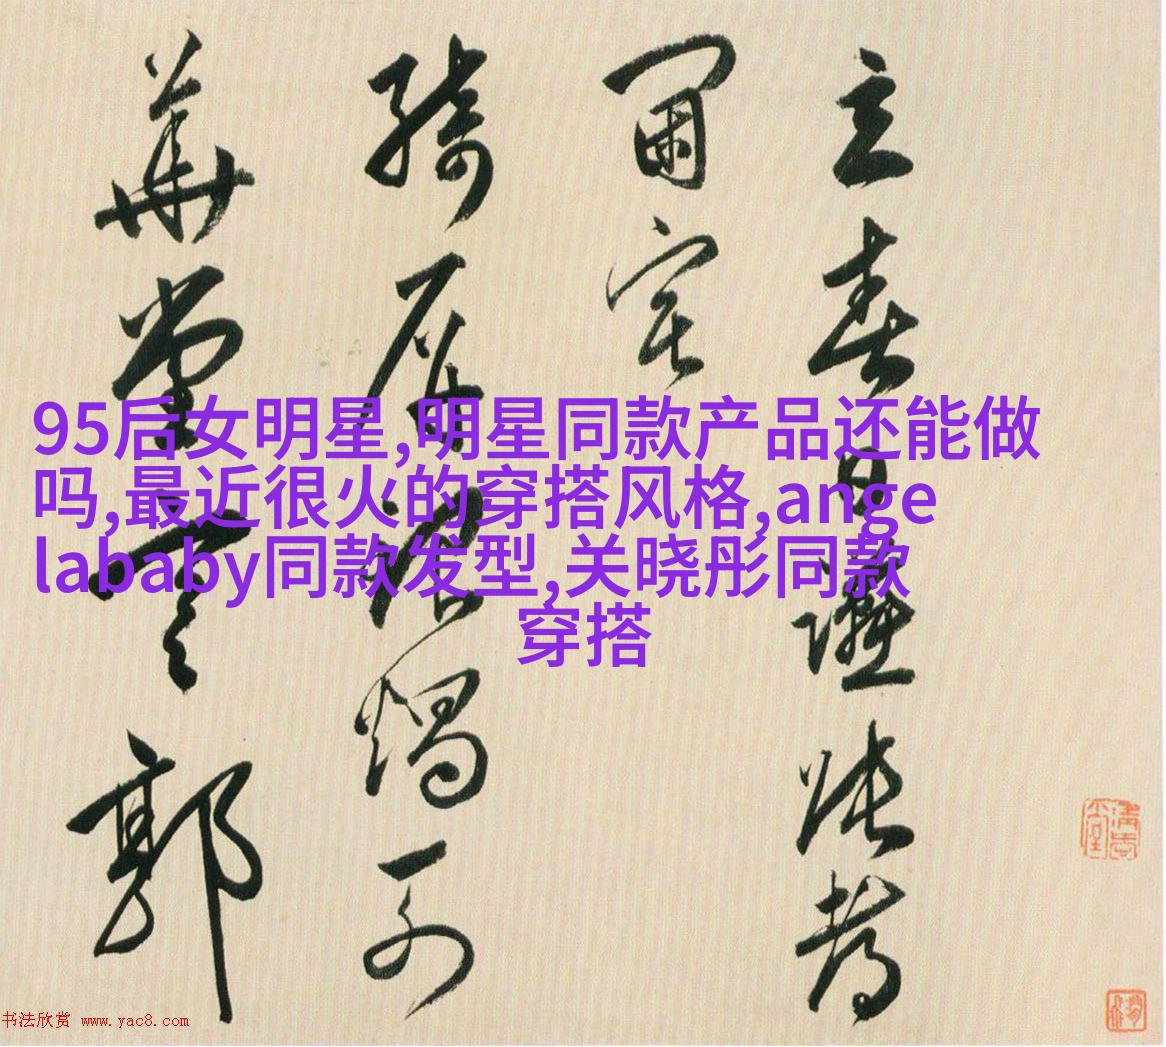 立春日讌張考
宅
綺席銀燭
華堂雲郭
95后女明星,明星同款产品还能做
吗,最近很火的穿搭风格,ange
lababy同款发型,关晓彤同款
穿搭
书法欣赏 www.yac8.com